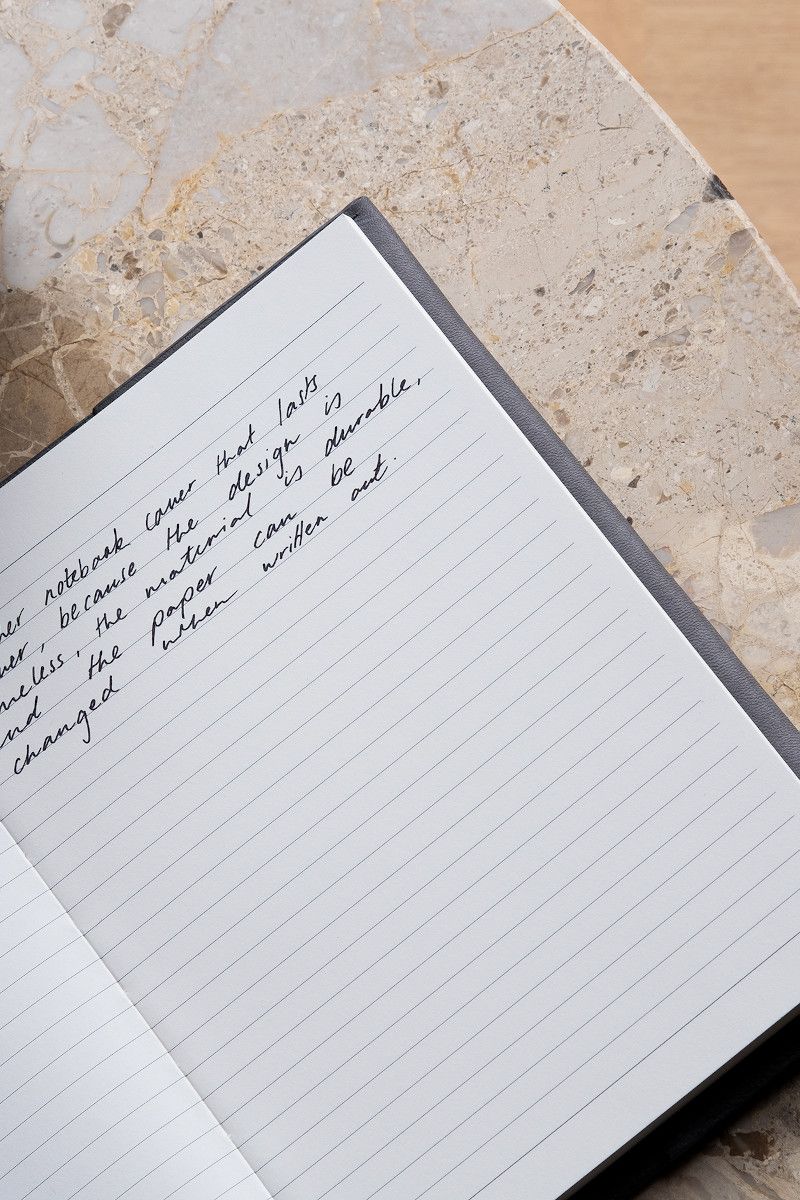 notebook cover that lasts
, because the design is
the material is durable,
the paper can be
changed when written out.